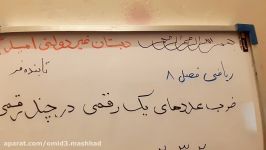 دبستان غیر دولتی امید
تابنده فر
ریاضی فصل ۸
ضرب عددهای یک رقمی در چند رقمی
aparat.com/omid3.mashhad